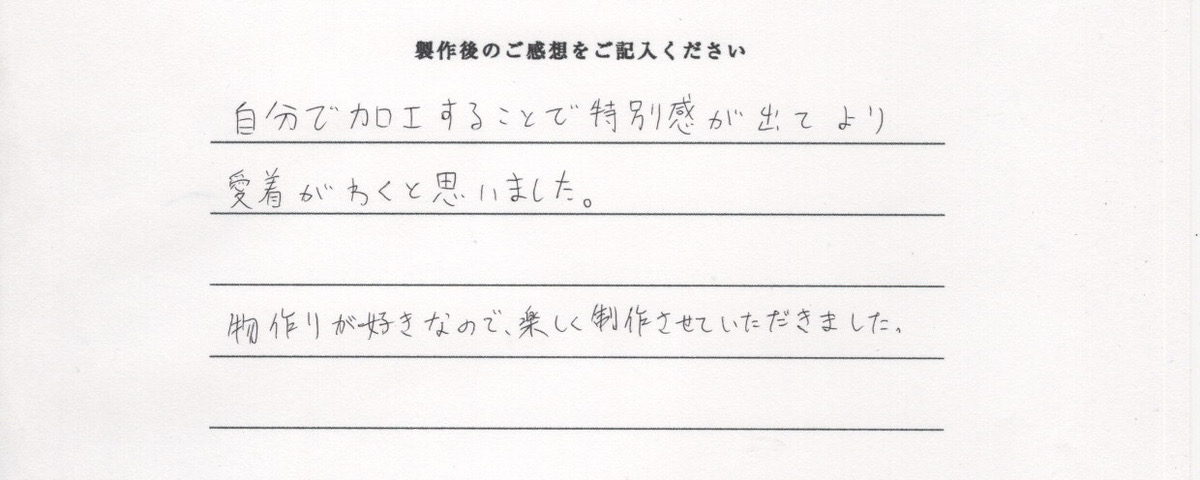 製作後のご感想をご記入ください
自分で加工することで特別感が出てより
愛着がわくと思いました。
物作りが好きなので、楽しく制作させていただきました。